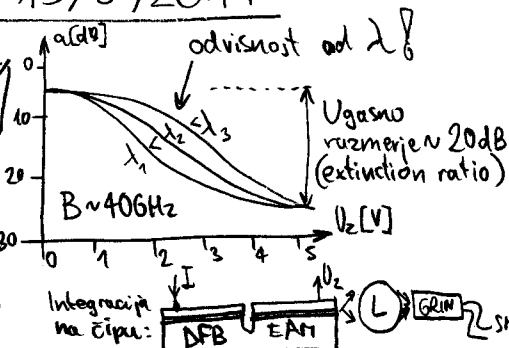 a[dB]
odvisnost od λ!
0
10
20
30
λ₁ < λ₂ < λ₃
Ugasno
razmerje ~ 20dB
(extinction ratio)
B ~ 40GHz
0 1 2 3 4 5
U₂[V]
I
U₂
Integracija
na čipu:
DFB
EAM
L
GRIN